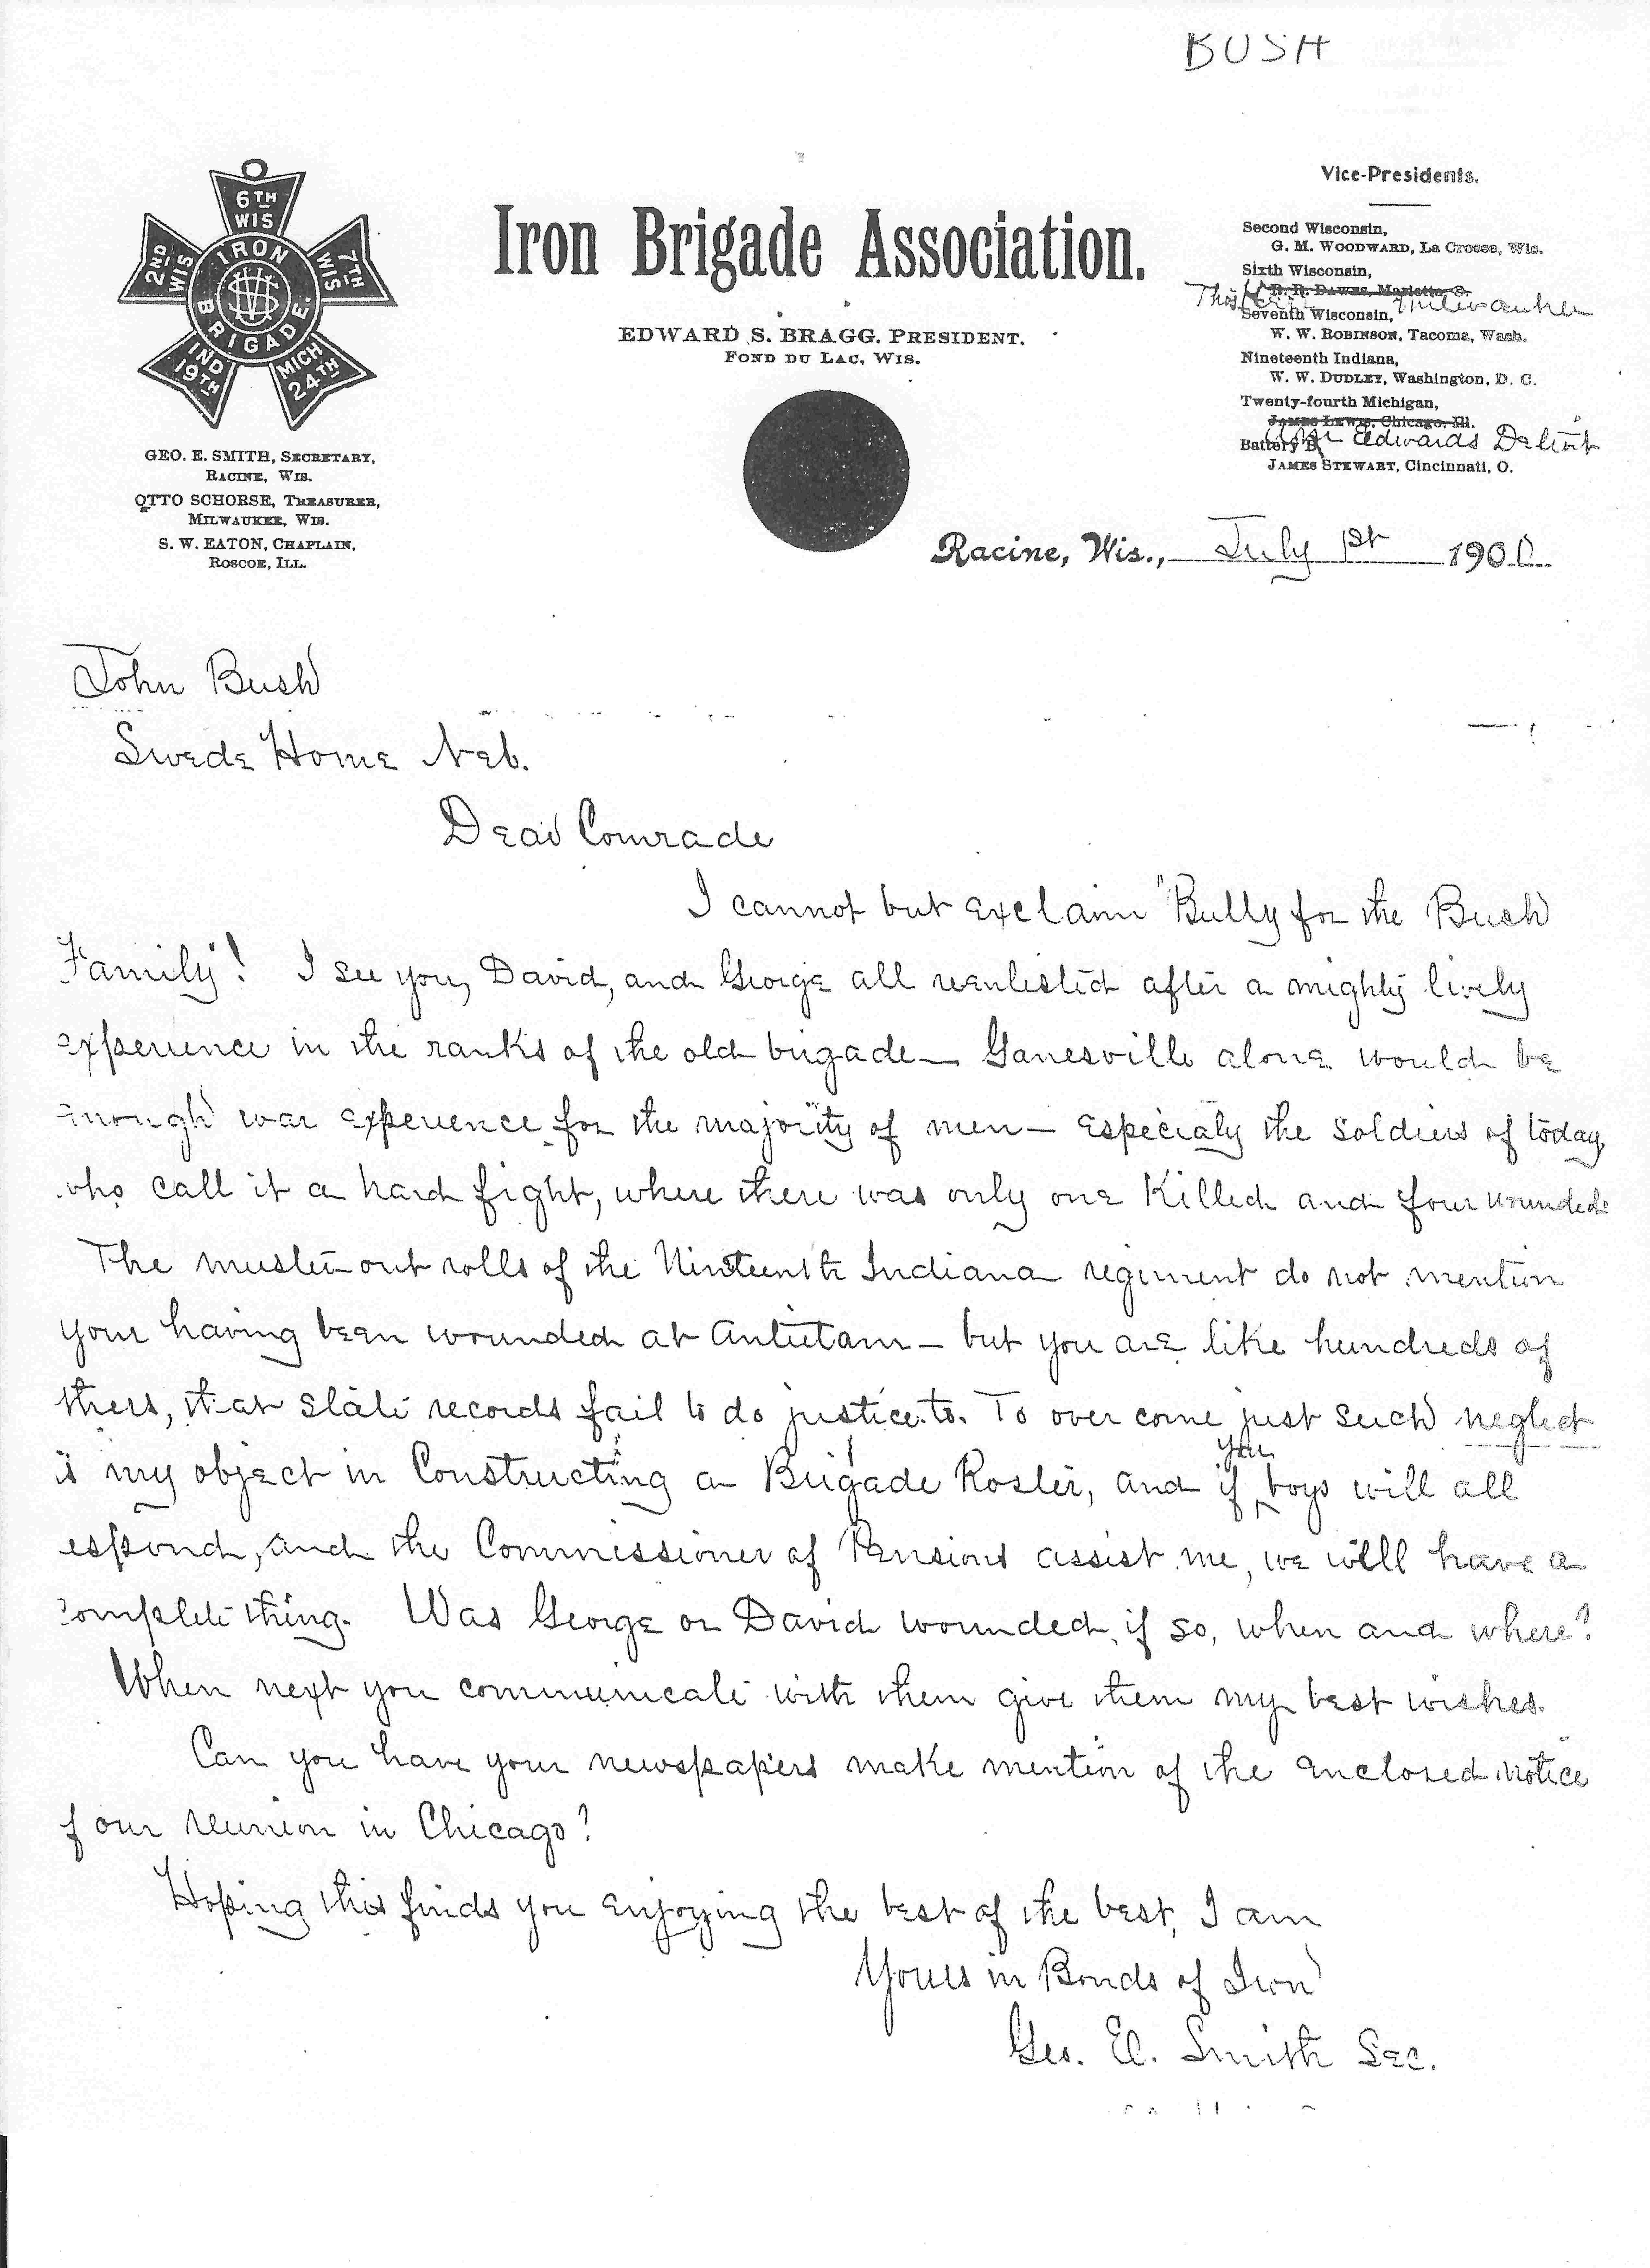 BUSH
6TH WIS
7TH WIS
MICH 24TH
IND 19TH
2ND WIS
IRON BRIGADE.
US
GEO. E. SMITH, SECRETARY,
RACINE, WIS.
OTTO SCHORSE, TREASURER,
MILWAUKEE, WIS.
S. W. EATON, CHAPLAIN,
ROSCOE, ILL.
Iron Brigade Association.
EDWARD S. BRAGG. PRESIDENT.
FOND DU LAC, WIS.
Vice-Presidents.
Second Wisconsin,
G. M. WOODWARD, La Crosse, Wis.
Sixth Wisconsin,
R. R. DAWES, Marietta, O.
Thos Milwaukee
Seventh Wisconsin,
W. W. ROBINSON, Tacoma, Wash.
Nineteenth Indiana,
W. W. DUDLEY, Washington, D. C.
Twenty-fourth Michigan,
JAMES LEWIS, Chicago, Ill.
Edwards Detroit
Battery B,
JAMES STEWART, Cincinnati, O.
Racine, Wis., July 1st 1900
John Bush
Swede Home Neb.
Dear Comrade
I cannot but exclaim "Bully for the Bush
Family"! I see you, David, and George all reenlisted after a mighty lively
experience in the ranks of the old brigade— Gainesville alone would be
enough war experience for the majority of men— especialy the soldiers of today,
who call it a hard fight, where there was only one killed and four wounded.
The muster-out rolls of the Ninteenth Indiana regiment do not mention
your having been wounded at Antietam— but you are like hundreds of
thers, that state records fail to do justice to. To over come just such neglect
is my object in Constructing a Brigade Roster, and if you boys will all
espond, and the Commissioner of Pensions assist me, we will have a
complete thing. Was George or David wounded, if so, when and where?
When next you communicate with them give them my best wishes.
Can you have your newspapers make mention of the enclosed notice
f our reunion in Chicago?
Hoping this finds you enjoying the best of the best, I am
Yours in Bonds of Iron
Geo. E. Smith Sec.